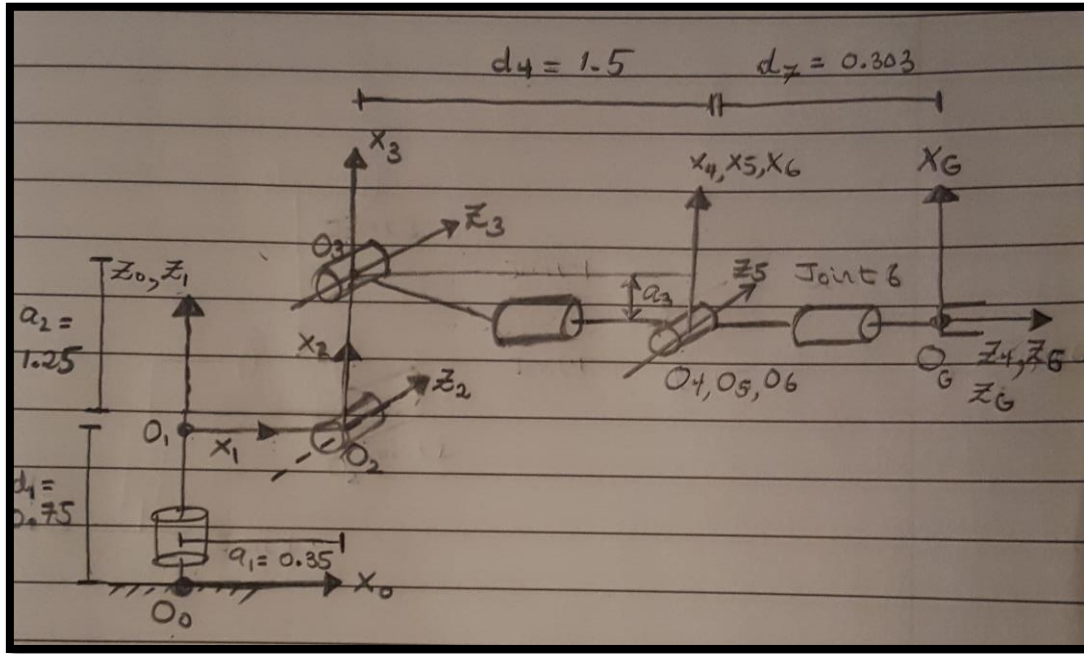 d4 = 1.5
d7 = 0.303
X3
X4, X5, X6
XG
Z3
O3
Z0, Z1
Z5
Joint 6
a3
a2 =
1.25
X2
Z2
O4, O5, O6
OG
Z4, Z6
ZG
O1
X1
O2
d1 =
0.75
a1 = 0.35
X0
O0